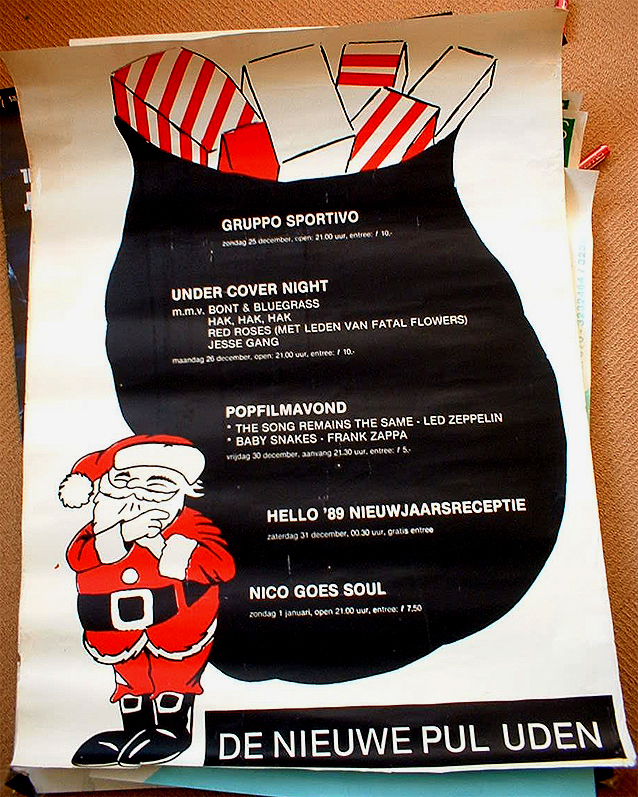 GRUPPO SPORTIVO
zondag 25 december, open: 21.00 uur, entree: f 10,-
UNDER COVER NIGHT
m.m.v. BONT & BLUEGRASS
HAK, HAK, HAK
RED ROSES (MET LEDEN VAN FATAL FLOWERS)
JESSE GANG
maandag 26 december, open: 21.00 uur, entree: f 10,-
POPFILMAVOND
* THE SONG REMAINS THE SAME - LED ZEPPELIN
* BABY SNAKES - FRANK ZAPPA
vrijdag 30 december, aanvang 21.30 uur, entree: f 5,-
HELLO '89 NIEUWJAARSRECEPTIE
zaterdag 31 december, 00.30 uur, gratis entree
NICO GOES SOUL
zondag 1 januari, open 21.00 uur, entree: f 7,50
DE NIEUWE PUL UDEN